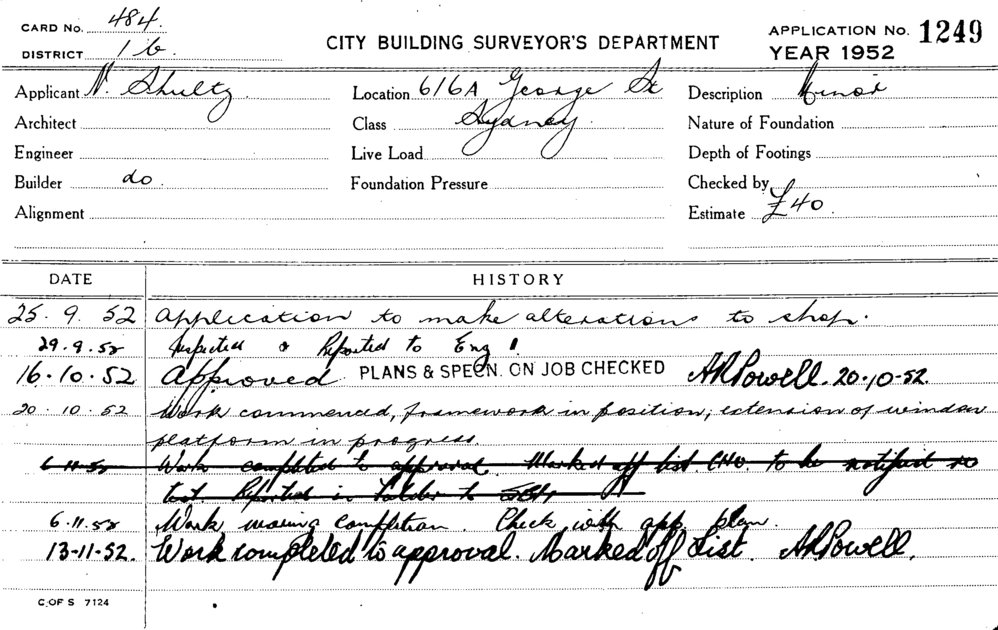 CARD No. 484.
DISTRICT 1 b.
CITY BUILDING SURVEYOR'S DEPARTMENT
APPLICATION No. 1249
YEAR 1952
Applicant N. Shultz
Location 616A George St
Description Minor
Architect
Class Sydney.
Nature of Foundation
Engineer
Live Load
Depth of Footings
Builder do
Foundation Pressure
Checked by
Alignment
Estimate £40
DATE HISTORY
25. 9. 52 Application to make alterations to shop.
29.9.52 Inspected & Reported to Eng
16.10.52 Approved PLANS & SPECN. ON JOB CHECKED ARPowell. 20-10-52.
20.10.52 Work commenced, framework in position, extension of window
platform in progress.
6.11.52 Work completed to approval. Marked off list to be notified so
Reported in folder to
6.11.52 Work nearing completion. Check with app. plan.
13-11-52. Work completed to approval. Marked off List. ARPowell.
C OF S 7124